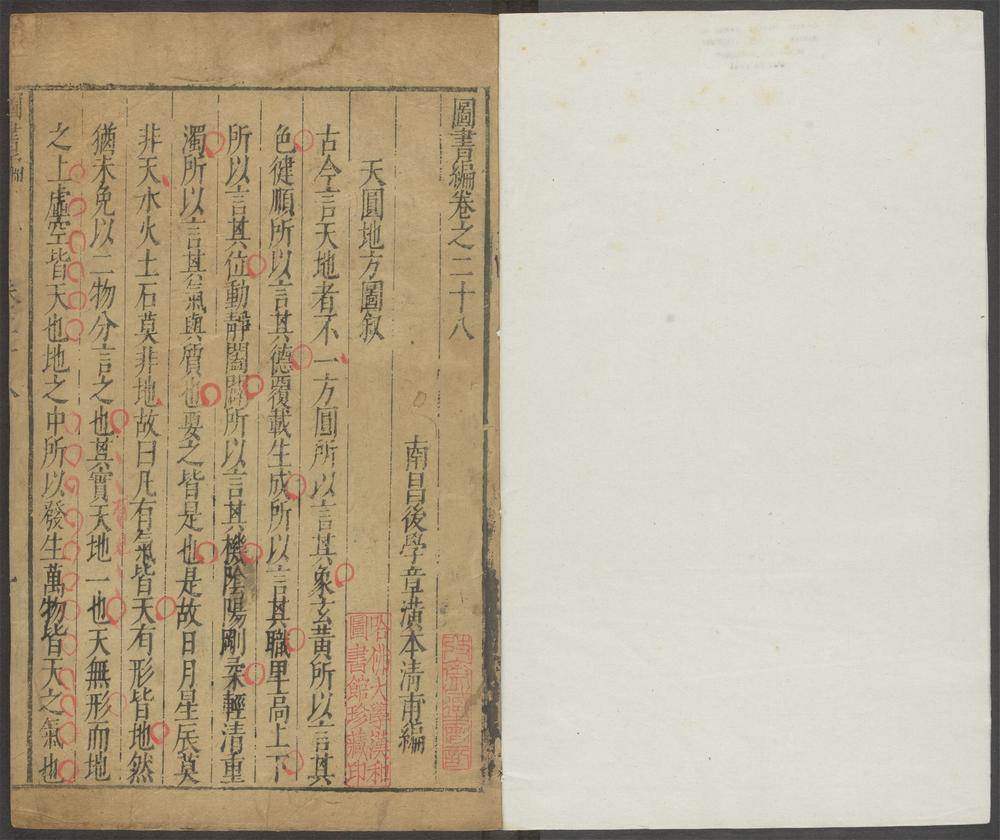 圖書編卷之二十八
南昌後學章潢本清甫編
天圓地方圖叙
古今言天地者不一方圓所以言其象玄黃所以言其
色健順所以言其德覆載生成所以言其職卑高上下
所以言其位動靜闔闢所以言其機陰陽剛柔輕清重
濁所以言其氣與質也要之皆是也是故日月星辰莫
非天水火土石莫非地故曰凡有氣皆天有形皆地然
猶未免以二物分言之也其實天地一也天無形而地
之上虛空皆天也地之中所以發生萬物皆天之氣也
哈佛大學漢和
圖書館珍藏印